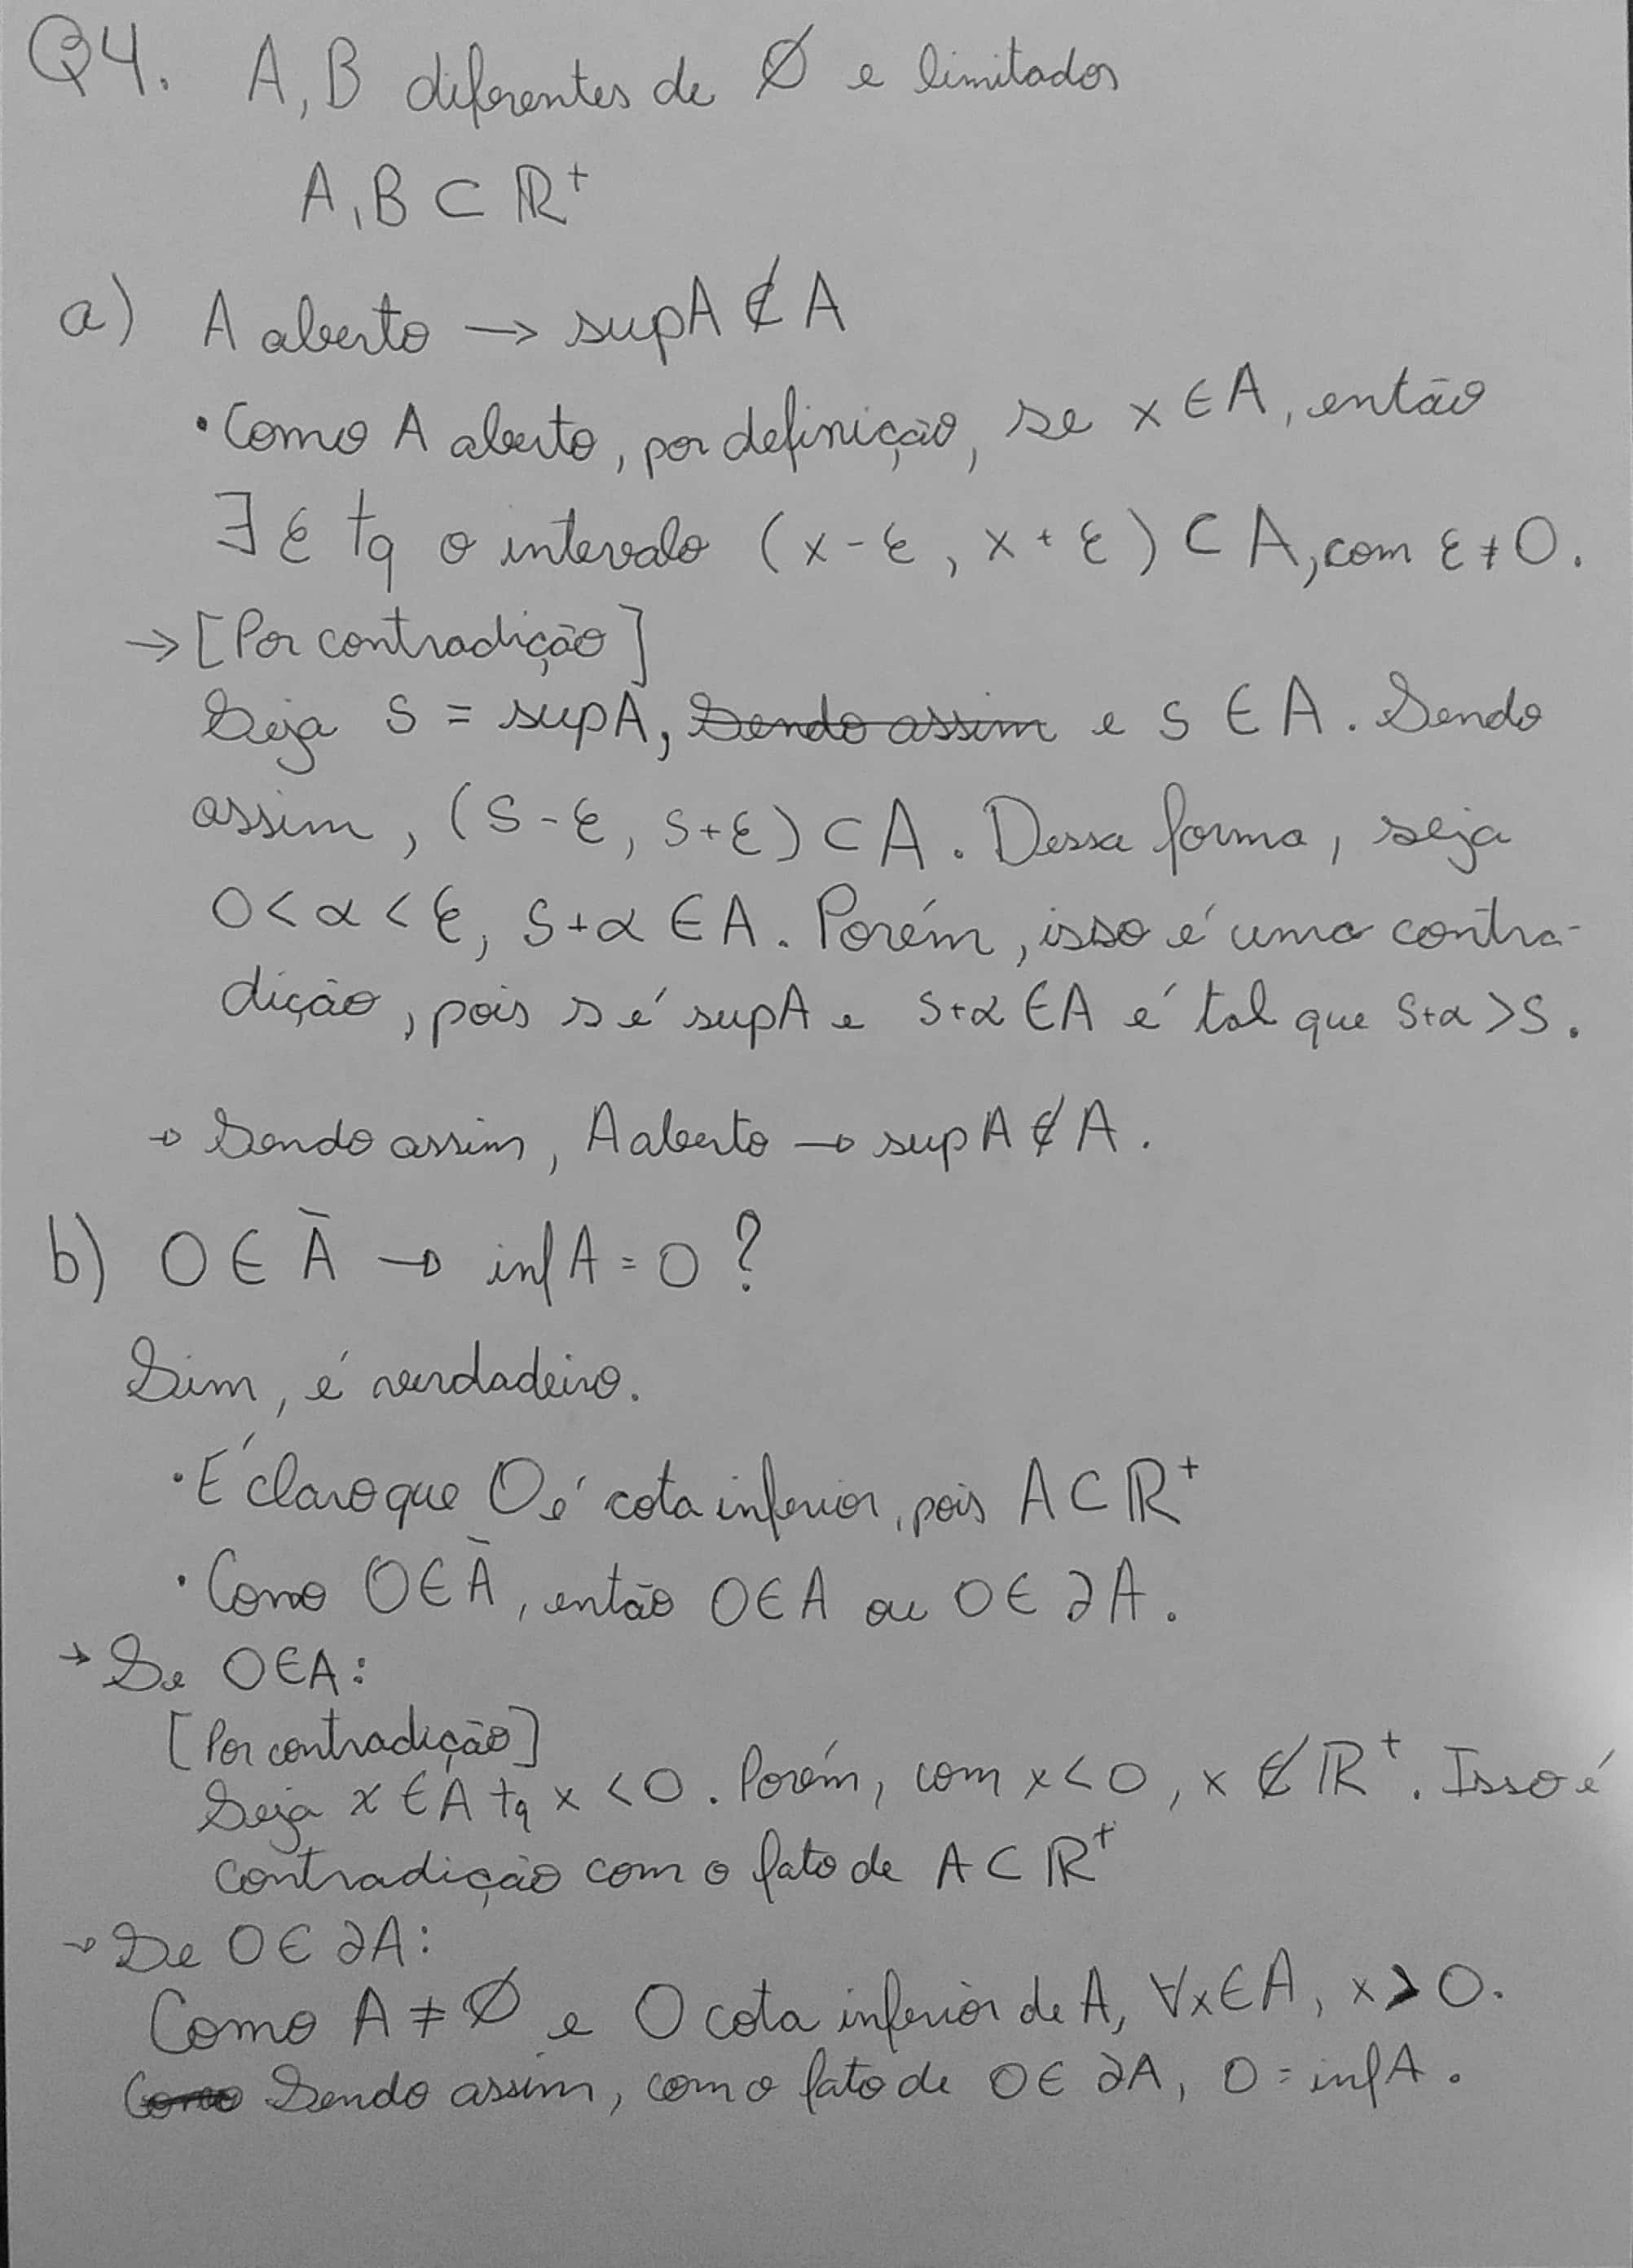 Q4. A, B diferentes de Ø e limitados
A, B ⊂ ℝ⁺
a) A aberto → supA ∉ A
• Como A aberto, por definição, se x ∈ A, então
∃ ε tq o intervalo (x - ε, x + ε) ⊂ A, com ε ≠ 0.
→ [Por contradição]
Seja s = supA, ~~Sendo assim~~ e s ∈ A. Sendo
assim, (s - ε, s + ε) ⊂ A. Dessa forma, seja
0 < α < ε, s + α ∈ A. Porém, isso é uma contra-
dição, pois s é supA e s+α ∈ A é tal que s+α > s.
→ Sendo assim, A aberto → sup A ∉ A.
b) 0 ∈ Ā → inf A = 0 ?
Sim, é verdadeiro.
• É claro que 0 é cota inferior, pois A ⊂ ℝ⁺
• Como 0 ∈ Ā, então 0 ∈ A ou 0 ∈ ∂A.
→ Se 0 ∈ A:
[Por contradição]
Seja x ∈ A tq x < 0. Porém, com x < 0, x ∉ ℝ⁺. Isso é
contradição com o fato de A ⊂ ℝ⁺
→ Se 0 ∈ ∂A:
Como A ≠ Ø e 0 cota inferior de A, ∀x ∈ A, x > 0.
~~Como~~ Sendo assim, com o fato de 0 ∈ ∂A, 0 = inf A.